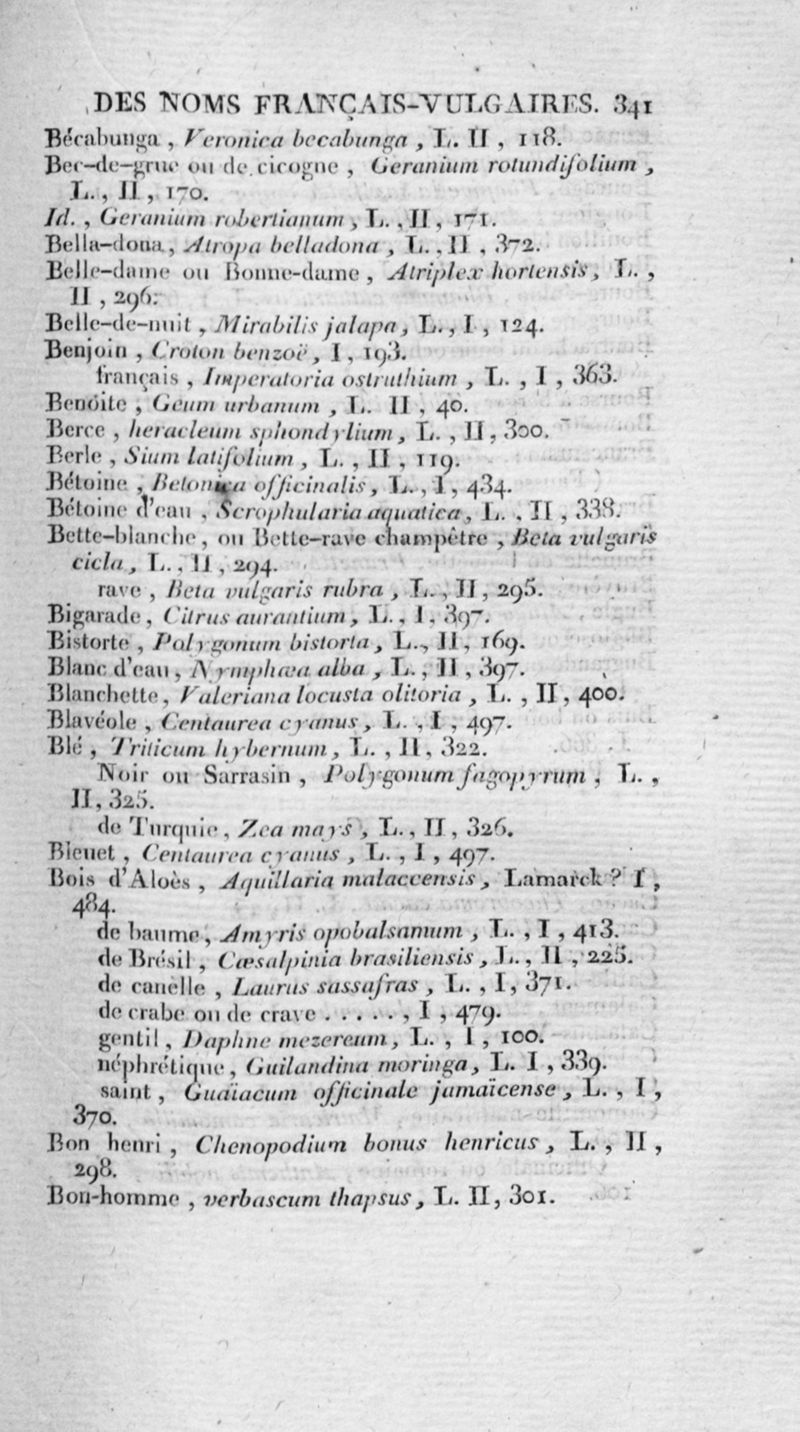 DES NOMS FRANÇAIS-VULGAIRES. 341
Bécabunga , Veronica beccabunga , L. II , 118.
Bec-de-grue ou de cicogne , Geranium rotundifolium ,
L. , II , 170.
Id. , Geranium robertianum , L. , II , 171.
Bella-dona , Atropa belladona , L. , II , 372.
Belle-dame ou Bonne-dame , Atriplex hortensis , L. ,
II , 296.
Belle-de-nuit , Mirabilis jalapa , L. , I , 124.
Benjoin , Croton benzoë , I , 193.
français , Imperatoria ostruthium , L. , I , 363.
Benóite , Geum urbanum , L. II , 40.
Berce , heracleum sphondylium , L. , II , 300.
Berle , Sium latifolium , L. , II , 119.
Bétoine , Betonica officinalis , L. , I , 434.
Bétoine d'eau , Scrophularia aquatica , L. , II , 338.
Bette-blanche , ou Bette-rave champêtre , Beta vulgaris
cicla , L. , II , 294.
rave , Beta vulgaris rubra , L. , II , 295.
Bigarade , Citrus aurantium , L. , I , 397.
Bistorte , Polygonum bistorta , L. , II , 169.
Blanc d'eau , Nymphæa alba , L. , II , 397.
Blanchette , Valeriana locusta olitoria , L. , II , 400.
Blavéole , Centaurea cyanus , L. , I , 497.
Blé , Triticum hybernum , L. , II , 322.
Noir ou Sarrasin , Polygonum fagopyrum , L. ,
II , 325.
de Turquie , Zea mays , L. , II , 326.
Bleuet , Centaurea cyanus , L. , I , 497.
Bois d'Aloès , Aquillaria malaccensis , Lamarck ? I ,
484.
de baume , Amyris opobalsamum , L. , I , 413.
de Brésil , Cæsalpinia brasiliensis , L. , II , 225.
de canèlle , Laurus sassafras , L. , I , 371.
de crabe ou de crave . . . . . , I , 479.
gentil , Daphne mezereum , L. , I , 100.
néphrétique , Guilandina moringa , L. I , 339.
saint , Guaïacum officinale jamaïcense , L. , I ,
370.
Bon henri , Chenopodium bonus henricus , L. , II ,
298.
Bon-homme , verbascum thapsus , L. II , 301.